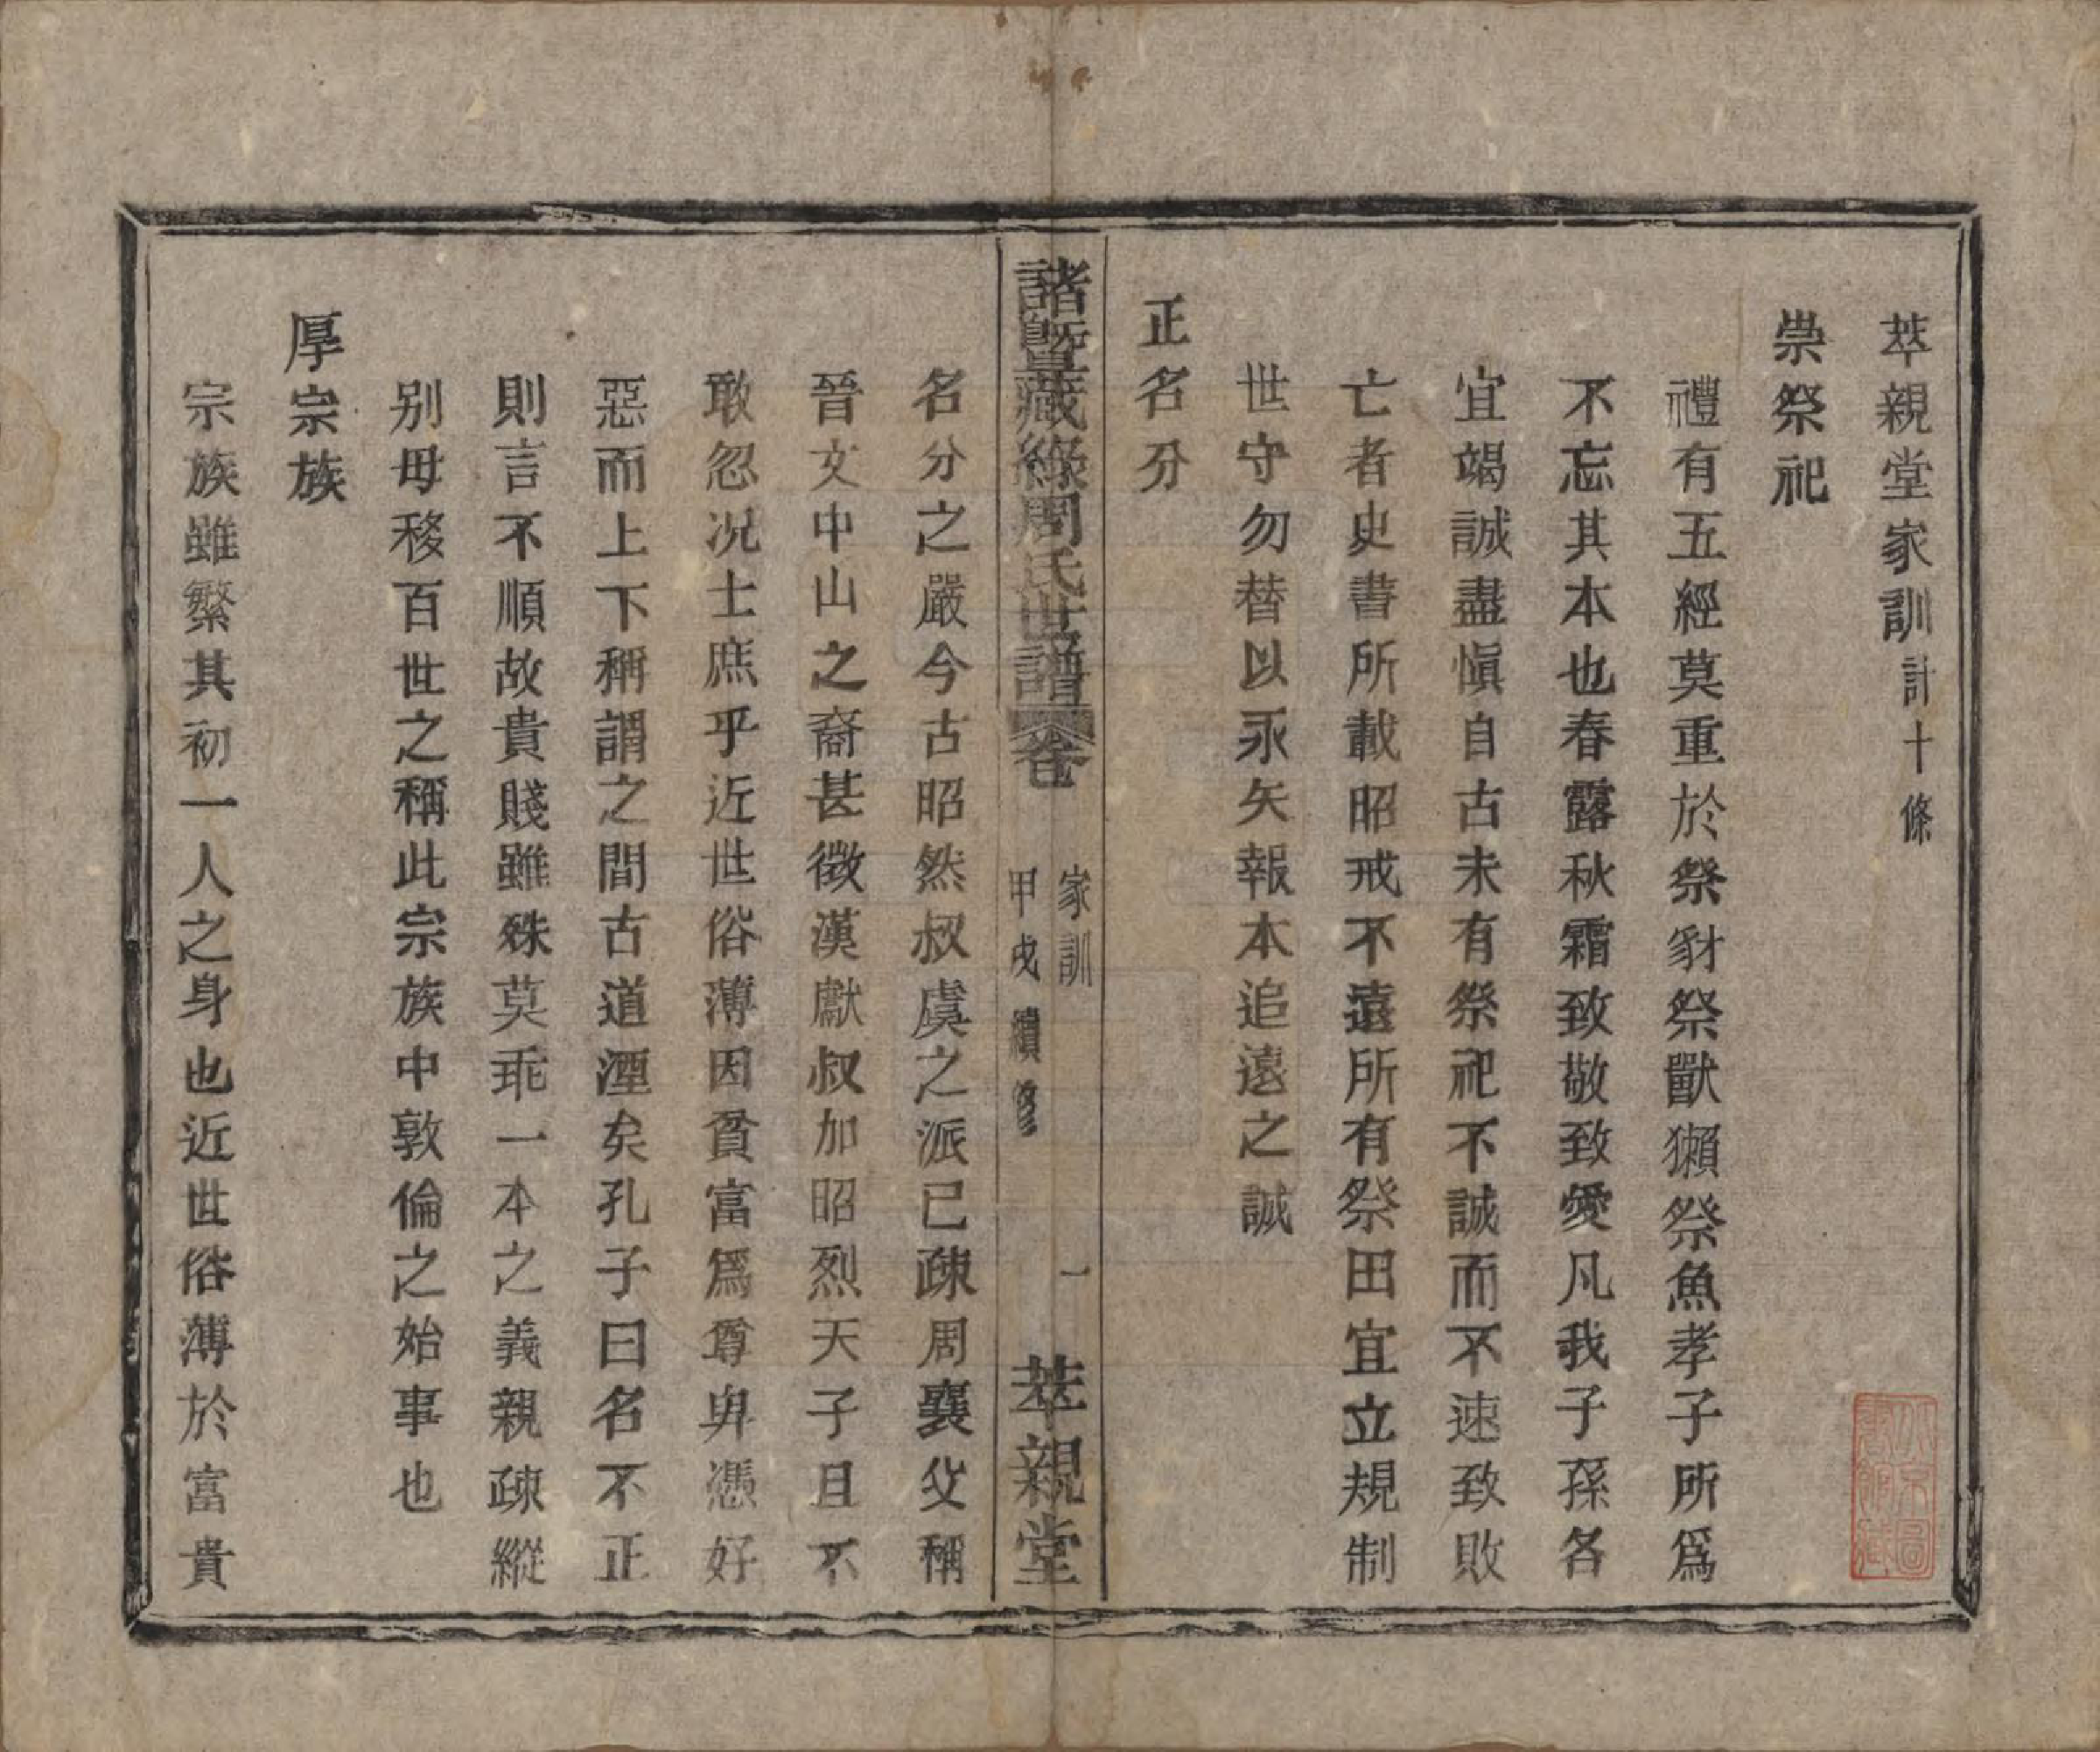 萃親堂家訓計十條
崇祭祀
禮有五經莫重於祭豺祭獸獺祭魚孝子所爲
不忘其本也春露秋霜致敬致愛凡我子孫各
宜竭誠盡愼自古未有祭祀不誠而不速致敗
亡者史書所載昭戒不遠所有祭田宜立規制
世守勿替以永矢報本追遠之誠
正名分
諸暨藏綠周氏世譜
卷
家訓
甲戌續修
一
萃親堂
名分之嚴今古昭然叔虞之派已疎周襄父稱
晉文中山之裔甚微漢獻叔加昭烈天子且不
敢忽况士庶乎近世俗薄因貧富爲尊卑憑好
惡而上下稱謂之間古道湮矣孔子曰名不正
則言不順故貴賤雖殊莫乖一本之義親疎縱
别毋移百世之稱此宗族中敦倫之始事也
厚宗族
宗族雖繁其初一人之身也近世俗薄於富貴